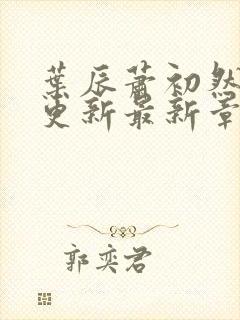 葉辰蕭初然
更新最新章
郭奕君